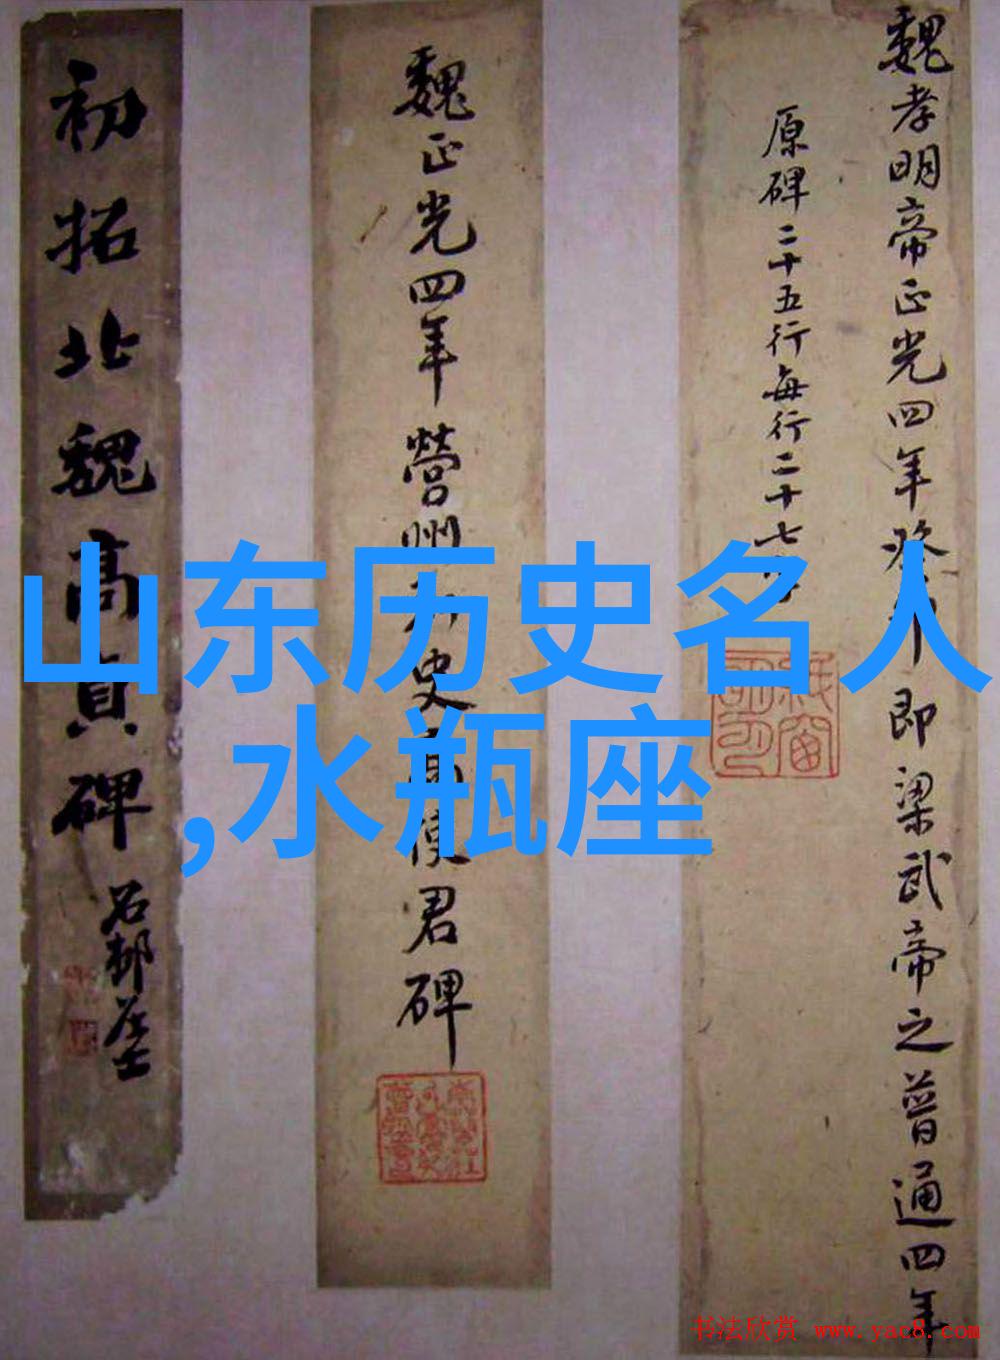 魏孝明帝正光四年癸卯即梁武帝之普通四年
原碑二十五行每行二十七字
魏正光四年營州刺史高使君碑
初拓北魏高貞碑
山东历史名人
,水瓶座
书法欣赏 www.yac8.com